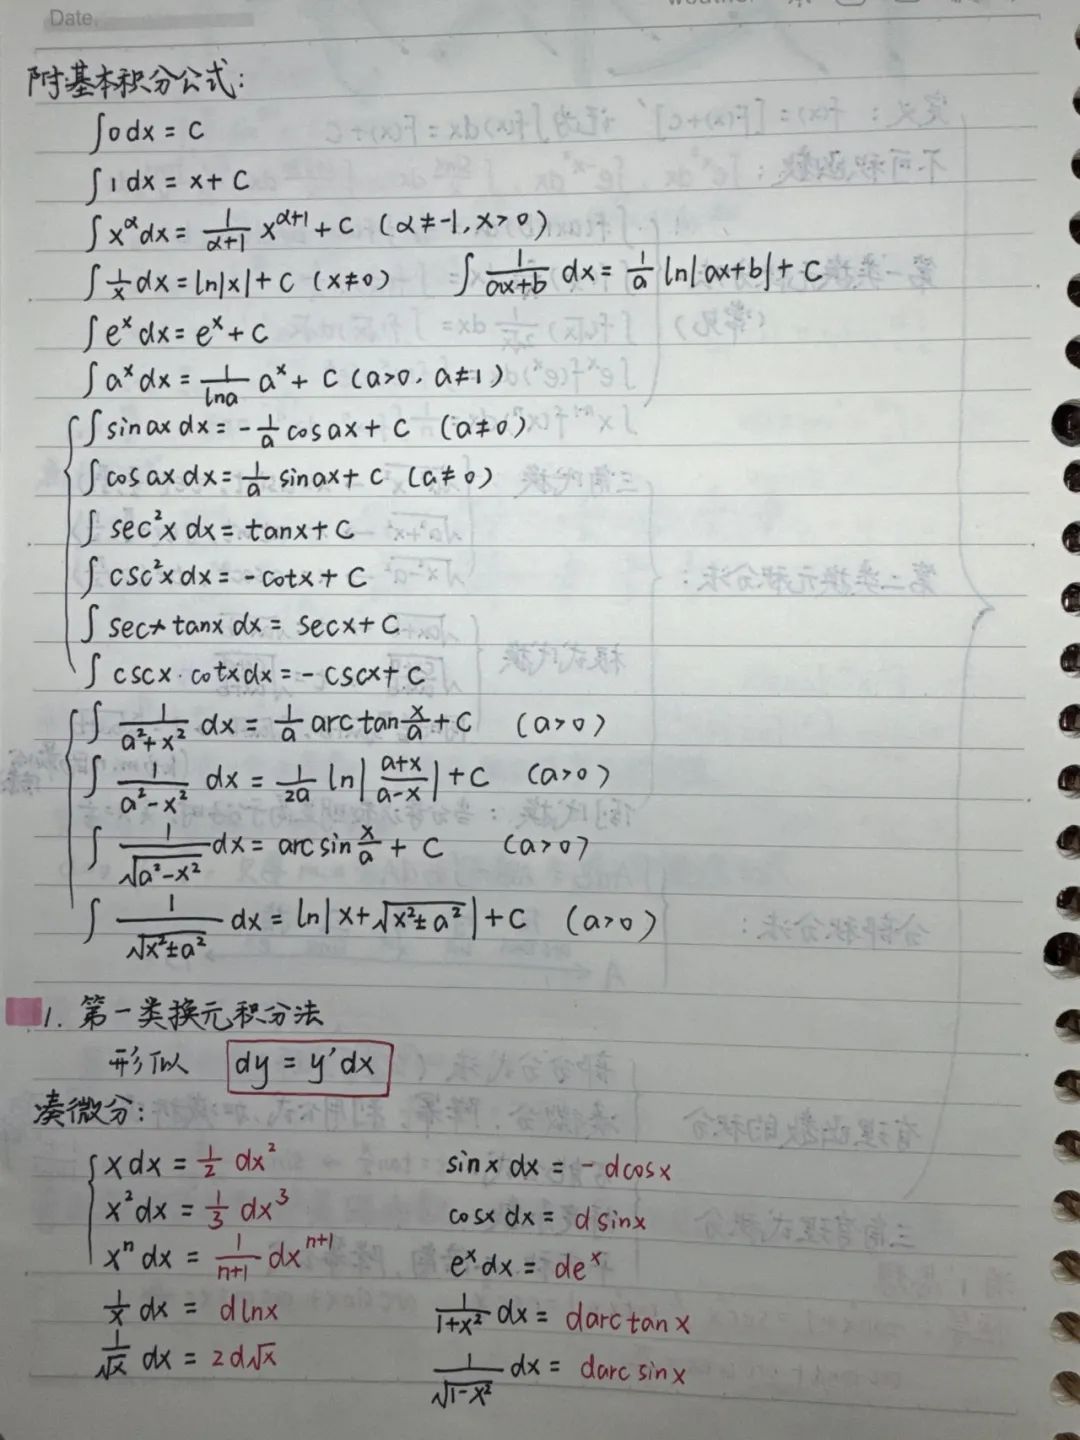 Date
附基本积分公式:
∫0dx = C
∫1dx = x+C
∫x^α dx = 1/(α+1) x^(α+1) + C (α≠-1, x>0)
∫1/x dx = ln|x|+C (x≠0) ∫1/(ax+b) dx = 1/a ln|ax+b|+C
∫e^x dx = e^x+C
∫a^x dx = 1/lna a^x + C (a>0, a≠1)
∫sinax dx = -1/a cosax + C (a≠0)
∫cosax dx = 1/a sinax + C (a≠0)
∫sec²x dx = tanx+C
∫csc²x dx = -cotx+C
∫secx tanx dx = secx+C
∫cscx·cotxdx = -cscx+C
∫1/(a²+x²) dx = 1/a arctan x/a + C (a>0)
∫1/(a²-x²) dx = 1/2a ln|(a+x)/(a-x)| + C (a>0)
∫1/√(a²-x²) dx = arcsin x/a + C (a>0)
∫1/√(x²±a²) dx = ln|x+√(x²±a²)|+C (a>0)
1. 第一类换元积分法
形似 dy = y'dx
凑微分:
xdx = 1/2 dx² sinx dx = -dcosx
x²dx = 1/3 dx³ cosx dx = dsinx
x^n dx = 1/(n+1) dx^(n+1) e^x dx = de^x
1/x dx = dlnx 1/(1+x²) dx = darctanx
1/√x dx = 2d√x 1/√(1-x²) dx = darcsinx